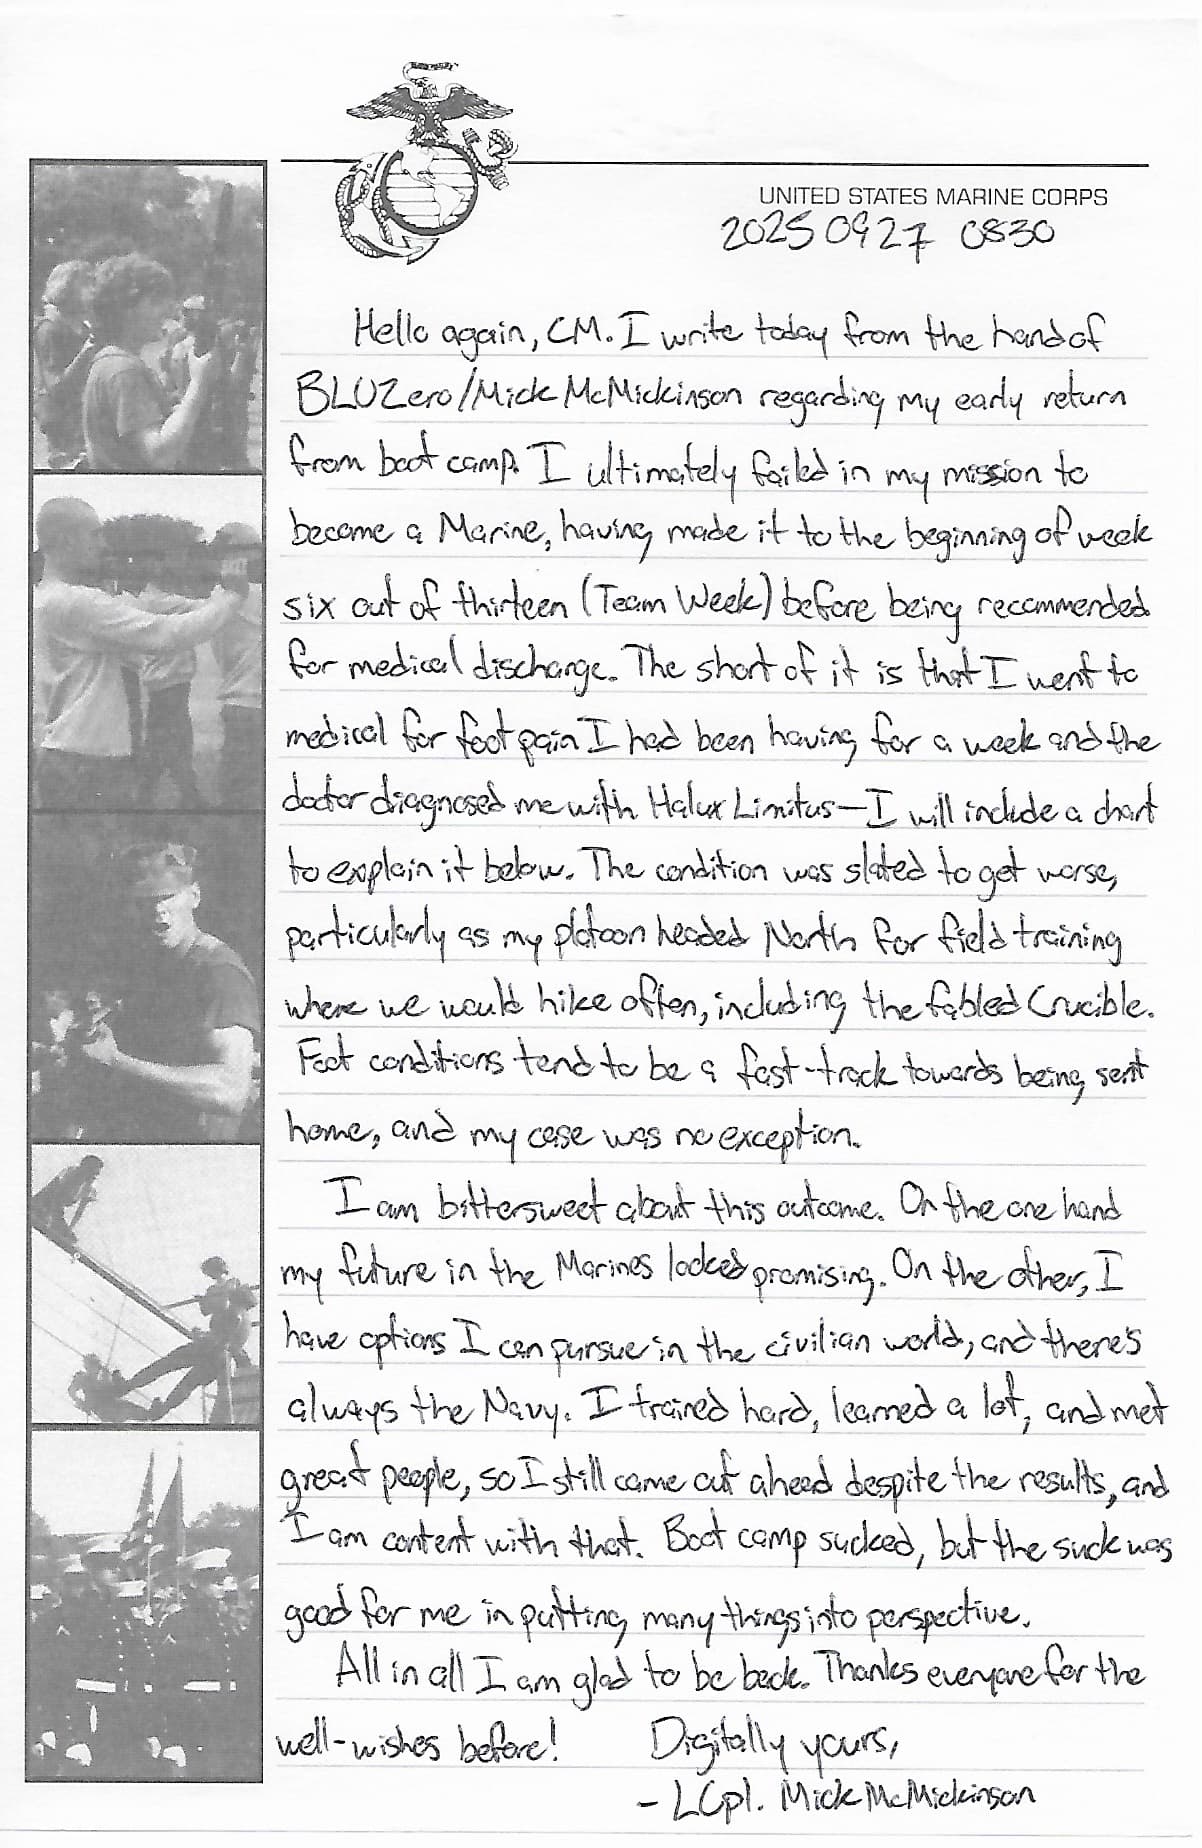 UNITED STATES MARINE CORPS
20250927 0830
Hello again, CM. I write today from the hand of
BLUZero/Mick McMickinson regarding my early return
from boot camp. I ultimately failed in my mission to
become a Marine, having made it to the beginning of week
six out of thirteen (Team Week) before being recommended
for medical discharge. The short of it is that I went to
medical for foot pain I had been having for a week and the
doctor diagnosed me with Halux Limitus—I will include a chart
to explain it below. The condition was slated to get worse,
particularly as my platoon headed North for field training
where we would hike often, including the fabled Crucible.
Foot conditions tend to be a fast-track towards being sent
home, and my case was no exception.
I am bittersweet about this outcome. On the one hand
my future in the Marines looked promising. On the other, I
have options I can pursue in the civilian world, and there's
always the Navy. I trained hard, learned a lot, and met
great people, so I still came out ahead despite the results, and
I am content with that. Boot camp sucked, but the suck was
good for me in putting many things into perspective.
All in all I am glad to be back. Thanks everyone for the
well-wishes before! Digitally yours,
- LCpl. Mick McMickinson